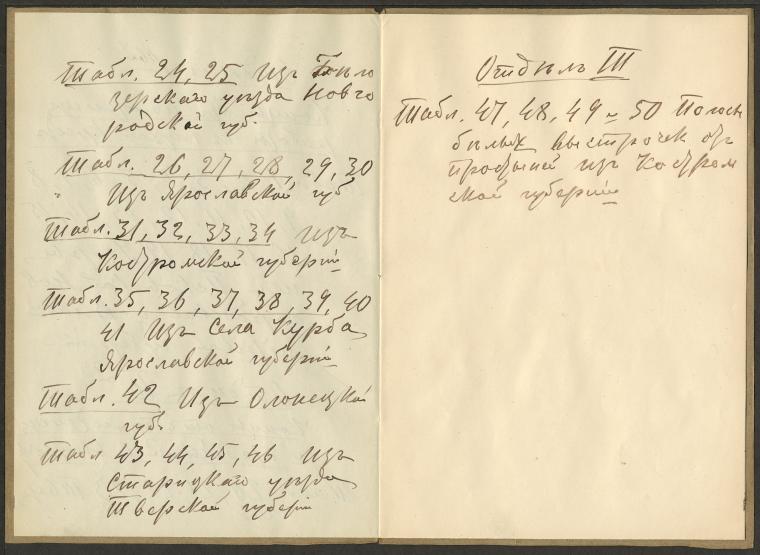 Табл. 24, 25 Изъ Бѣло
зерскаго уѣзда Новго
родской губ.
Табл. 26, 27, 28, 29, 30
Изъ Ярославской губ
Табл. 31, 32, 33, 34 Изъ
Костромской губерніи
Табл. 35, 36, 37, 38, 39, 40
41 Изъ села Курба
Ярославской губерніи
Табл. 42 Изъ Олонецкой
губ.
Табл 43, 44, 45, 46 Изъ
Старицкаго уѣзда
Тверской губерніи
Отдѣлъ III
Табл. 47, 48, 49 и 50 Полосы
бѣлыхъ выстрочек отъ
простыней изъ Костром
ской губерніи